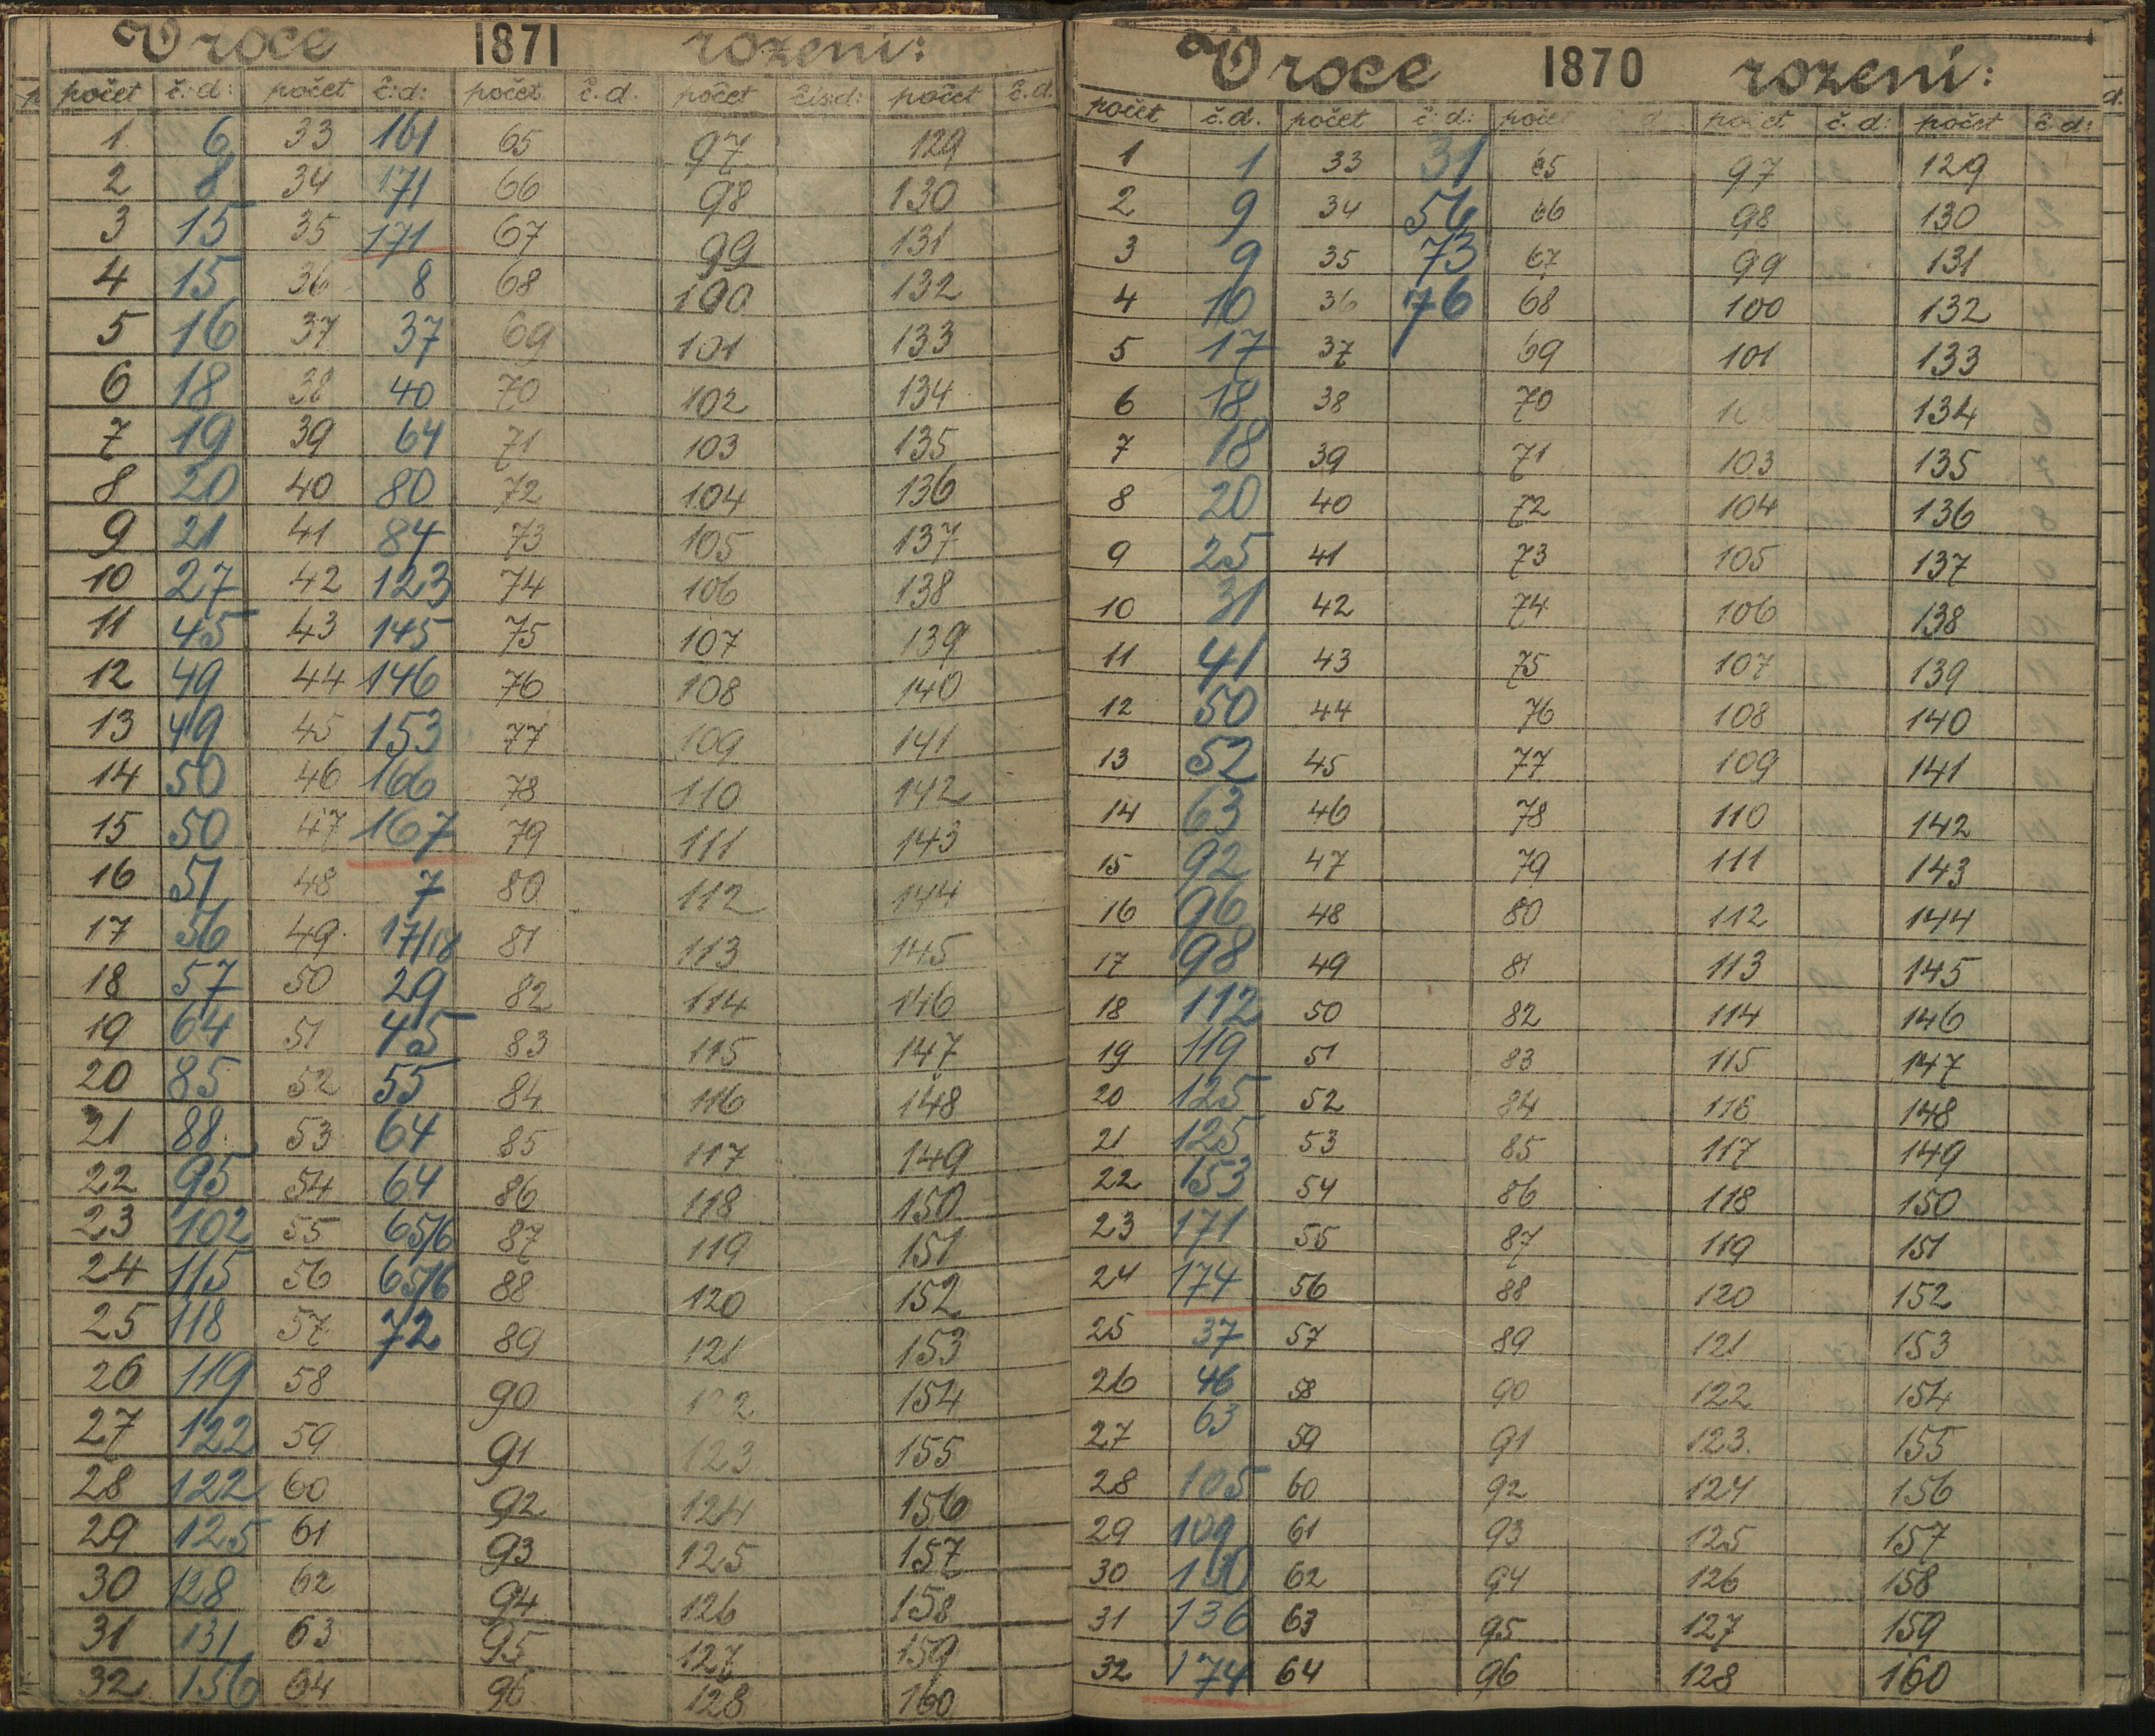 V roce 1871 rození:
počet č:d: počet č:d: počet č.d. počet čís:d: počet č.d.
1 6 33 161 65 97 129
2 8 34 171 66 98 130
3 15 35 171 67 99 131
4 15 36 8 68 100 132
5 16 37 37 69 101 133
6 18 38 40 70 102 134
7 19 39 64 71 103 135
8 20 40 80 72 104 136
9 21 41 84 73 105 137
10 27 42 123 74 106 138
11 45 43 145 75 107 139
12 49 44 146 76 108 140
13 49 45 153 77 109 141
14 50 46 166 78 110 142
15 50 47 167 79 111 143
16 51 48 7 80 112 144
17 56 49. 17/18 81 113 145
18 57 50 29 82 114 146
19 64 51 45 83 115 147
20 85 52 55 84 116 148
21 88 53 64 85 117 149
22 95 54 64 86 118 150
23 102 55 65/6 87 119 151
24 115 56 65/6 88 120 152
25 118 57 72 89 121 153
26 119 58 90 122 154
27 122 59 91 123 155
28 122 60 92 124 156
29 125 61 93 125 157
30 128 62 94 126 158
31 131 63 95 127 159
32 156 64 96 128 160
V roce 1870 rození:
počet č.d. počet č:d: počet d počet č.d: počet č.d:
1 1 33 31 65 97 129
2 9 34 56 66 98 130
3 9 35 73 67 99 131
4 10 36 76 68 100 132
5 17 37 69 101 133
6 18 38 70 134
7 18 39 71 103 135
8 20 40 72 104 136
9 25 41 73 105 137
10 31 42 74 106 138
11 41 43 75 107 139
12 50 44 76 108 140
13 52 45 77 109 141
14 63 46 78 110 142
15 92 47 79 111 143
16 96 48 80 112 144
17 98 49 81 113 145
18 112 50 82 114 146
19 119 51 83 115 147
20 125 52 84 116 148
21 125 53 85 117 149
22 153 54 86 118 150
23 171 55 87 119 151
24 174 56 88 120 152
25 37 57 89 121 153
26 46 58 90 122 154
27 63 59 91 123. 155
28 105 60 92 124 156
29 109 61 93 125 157
30 130 62 94 126 158
31 136 63 95 127 159
32 174 64 96 128 160